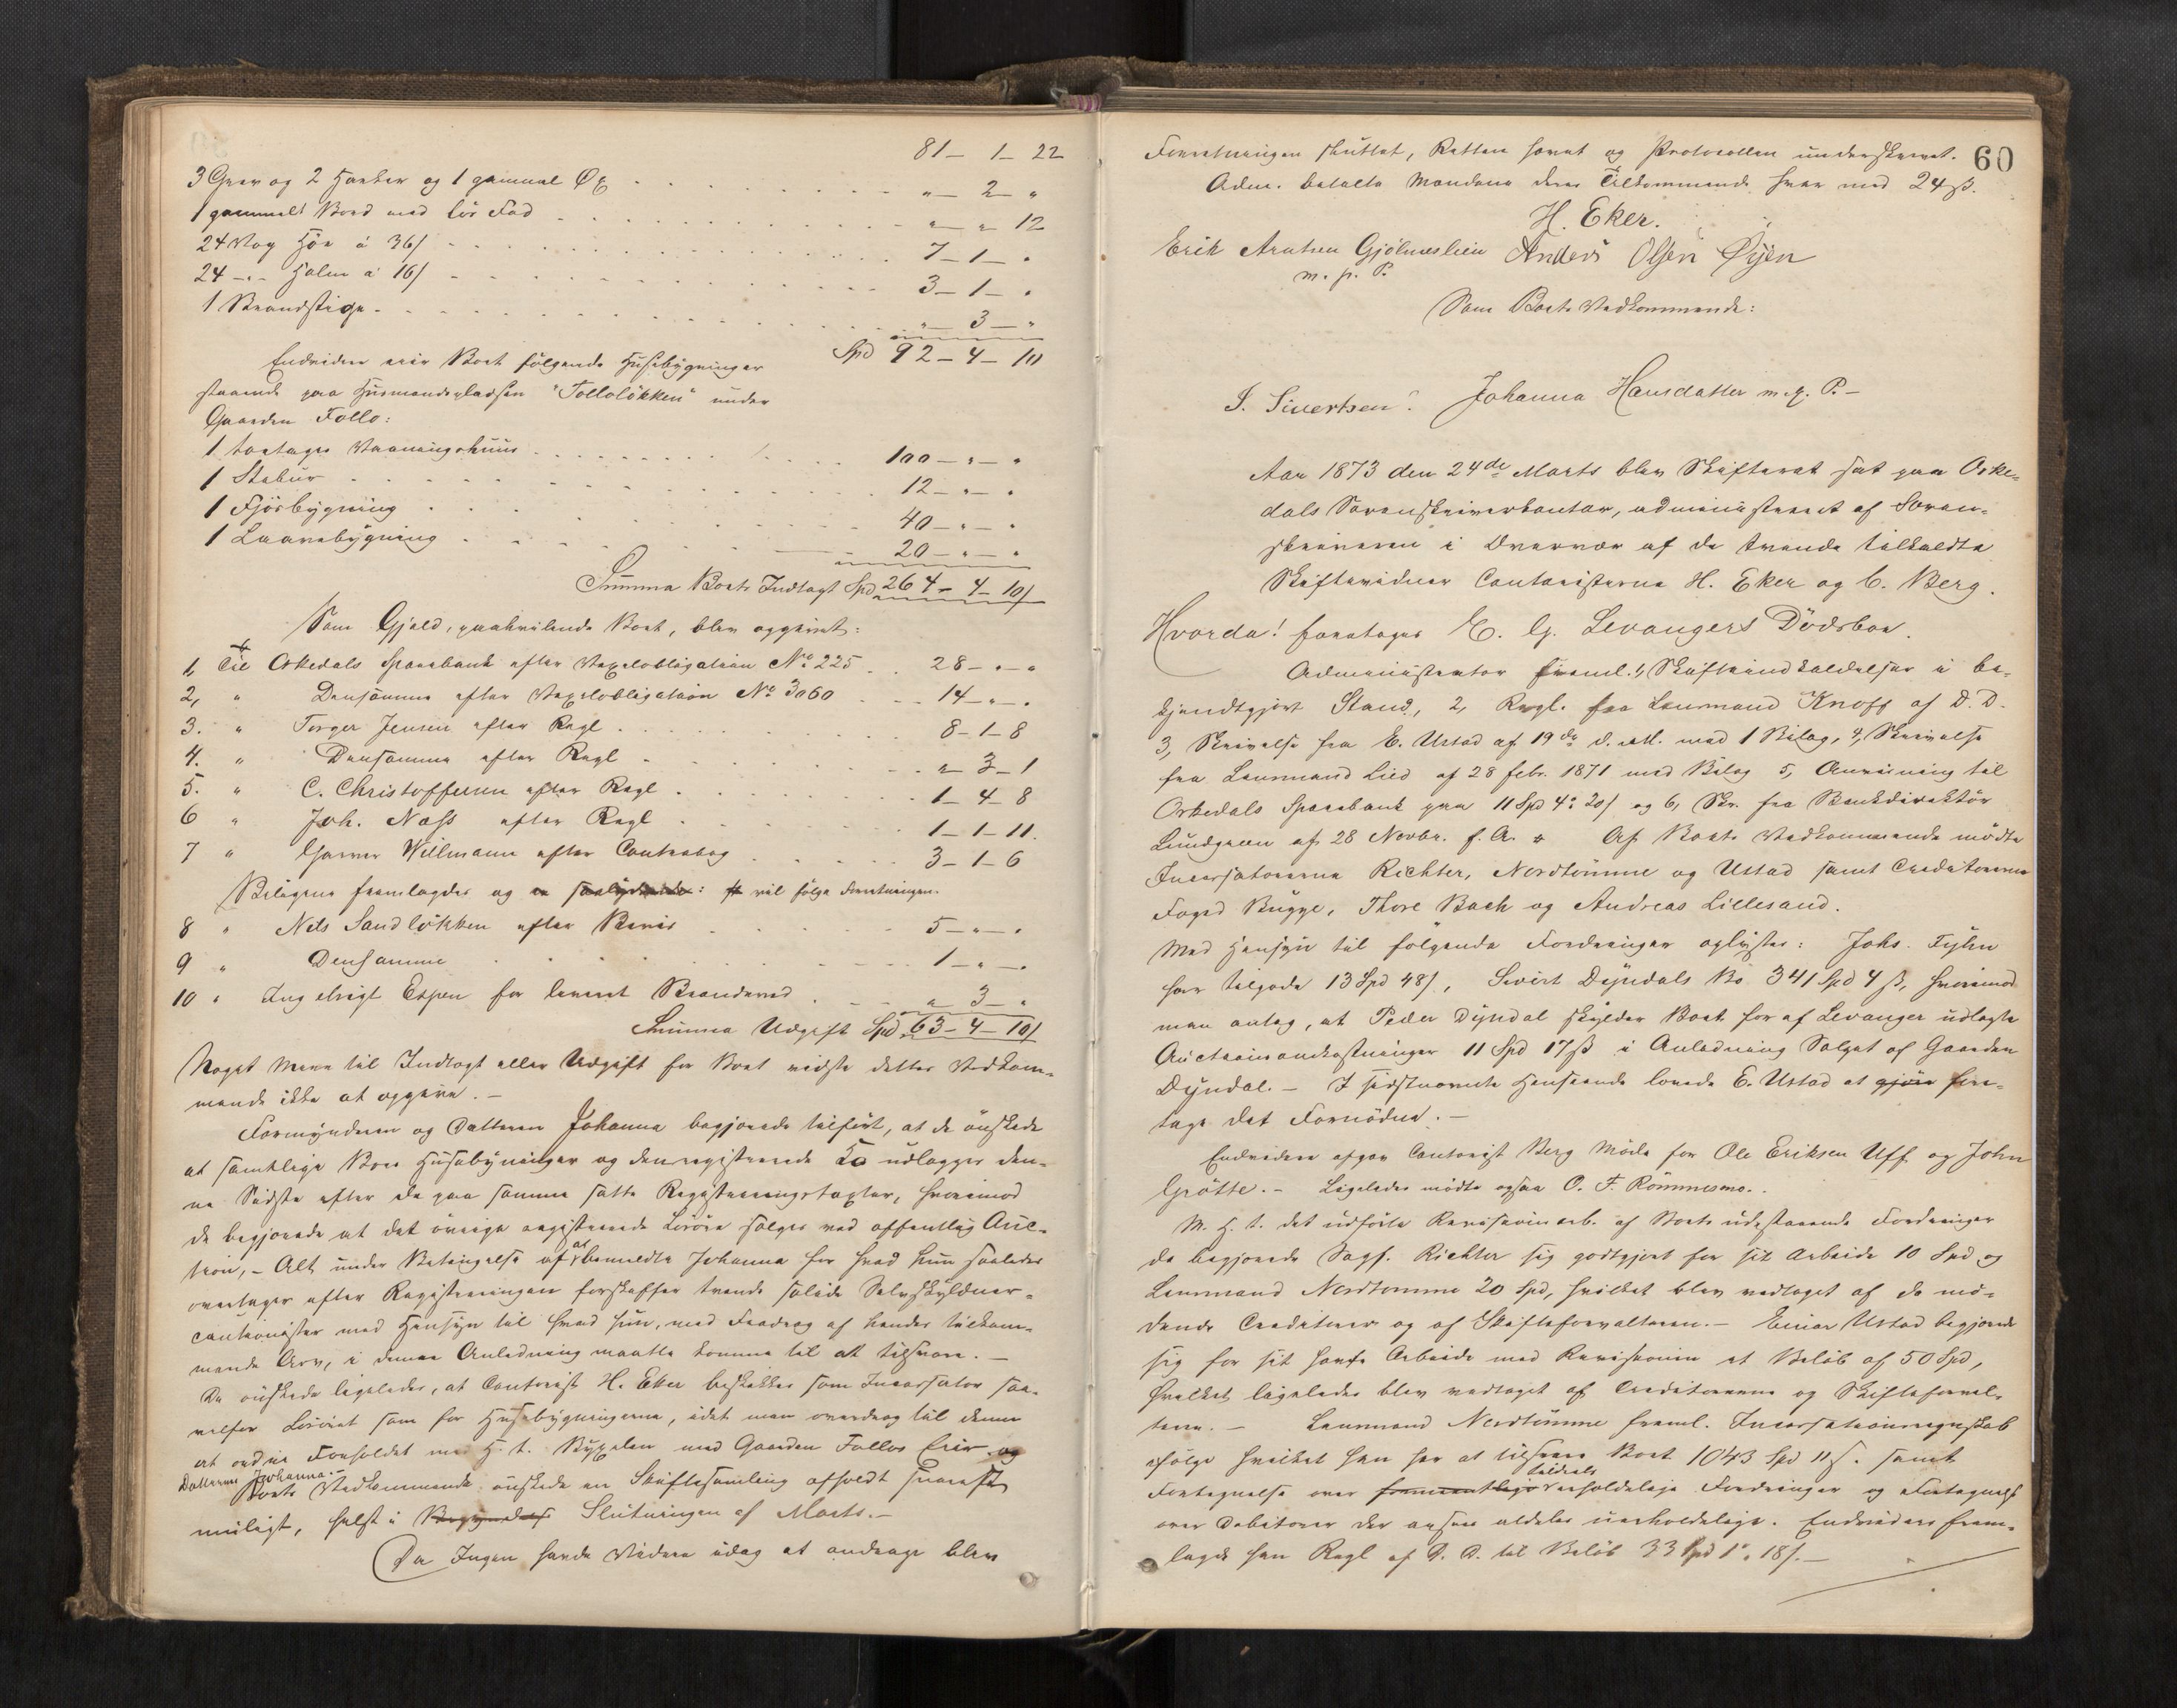 81 – 1 – 22
3 Grev og 2 Hakker og 1 gammel Øx . . . . " – 2 – "
1 gammelt Bord med løs Fod . . . . " – " 12
24 Vog Høe á 36 s . . . . 7 – 1 – "
24 – " – Halm á 16 s . . . . 3 – 1 – "
1 Brandstige . . . . " – 3 – "
Spd 92 – 4 – 10
Endvidere eier Boet følgende Husebygninger
staaende paa Husmandspladsen "Folloløkken" under
Gaarden Follo:
1 toetages Vaaningshuus . . . . 100 – " – "
1 Stabur . . . . 12 – " – "
1 Fjøsbygning . . . . 40 – " – "
1 Laavebygning . . . . 20 – " – "
Summa Boets Indtægt Spd 264 – 4 – 10 s
Som Gjæld, paahvilende Boet, blev opgivet:
1, Til Orkedals Sparebank efter Vexelobligation No 225 . . 28 – " – "
2, " Densamme efter Vexelobligation No 3060 . . 14 – " – "
3. " Torger Jensen efter Regl . . . . 8 – 1 – 8
4. " Densamme efter Regl . . . . " – 3 – 1
5. " C. Christoffersen efter Regl . . . . 1 – 4 – 8
6 " Joh. Næss efter Regl . . . . 1 – 1 – 11.
7 " Garver Willmann efter Contrabog . . . . 3 – 1 – 6
Bilagene fremlagdes og vil følge Forretningen.
8 " Nils Sandløkken efter Beviis . . . . 5 – " – "
9 " Densamme . . . . 1 – " – "
10 " Ingebrigt Espen for leveret Brændeved . . . " – 3 – "
Summa Udgift Spd 63 – 4 – 10 s
Noget mere til Indtægt eller Udgift for Boet vidste dettes Vedkom-
mende ikke at opgive. –
Formynderen og Datteren Johanna begjærede tilført, at de ønskede
at samtlige Boets Husebygninger og den registrerede Ko udlægges den-
ne Sidste efter de paa samme satte Registreringstaxter, hvorimod
de begjærede at det øvrige registrerede Løsøre sælges ved offentlig Auc-
tion, – Alt under Betingelse af at bemeldte Johanna for hvad hun saaledes
overtager efter Registreringen forskaffer tvende solide Selvskyldner-
cautionister med Hensyn til hvad hun, med Fradrag af hendes tilkom-
mende Arv, i denne Anledning maatte komme til at tilsvare. –
De ønskede ligeledes, at Contorist H. Eker beskikkes som Incassator saa-
velfor Løsøret som for Husebygningerne, idet man overdrog til denne
at ordne Forholdet med H. t. Bygselen med Gaarden Follos Eier og
Datteren Johanna. –
Boets Vedkommende ønskede en Skiftesamling afholdt snarest
muligt, helst i Begyndels Slutningen af Marts. –
Da Ingen havde Videre idag at andrage blev
60
Forretningen sluttet, Retten hævet og Protocollen underskrevet.
Adm. betalte Mændene deres Tilkommende hver med 24 ß.
H. Eker.
Erik Arntsen Gjølmeslien Anders Olsen Øyen
m. p. P.
Som Boets Vedkommende:
I. Sivertsen. Johanna Hansdatter m. p. P. –
Aar 1873 den 24de Marts blev Skifteret sat paa Orke-
dals Sorenskriverkontor, administreret af Soren-
skriveren i Overvær af de tvende tilkaldte
Skiftevidner Contoristerne H. Eker og C. Berg.
Hvorda! foretoges E. G. Levangers Dødsboe.
Administrator freml. 1, Skifteindkaldelser i be-
kjendtgjort Stand, 2, Regl. fra Lensmand Knoff af D. D.
3, Skrivelse fra E. Ustad af 19de d. M. med 1 Bilag, 4, Skrivelse
fra Lensmand Lied af 28 febr. 1871 med Bilag 5, Anvisning til
Orkedals Sparebank paa 11 Spd 4 " 20 s og 6, Skr. fra Bankdirektør
Lundgreen af 28 Novbr. f. A. Af Boets Vedkommende mødte
Incassatorerne Richter, Nordtømme og Ustad samt Creditorerne
Foged Bugge, Thore Bach og Andreas Lillesand.
Med Hensyn til følgende Fordringer oplystes: Johs. Fyhn
har tilgode 13 Spd 48 s, Sivert Dyndals Bo 341 Spd 4 ß, hvorimod
man antog, at Peder Dyndal skylder Boet for af Levanger udlagte
Auctionsomkostninger 11 Spd 17 ß i Anledning Salget af Gaarden
Dyndal. – I sidstnævnte Henseende lovede E. Ustad at gjøre fore-
tage det Fornødne. –
Endvidere afgav Contorist Berg Møde for Ole Eriksen Uff og John
Grøtte. – Ligeledes mødte ogsaa O. F. Rømmesmo.
M. H. t. det udførte Revisionsarb. af Boets udestaaende Fordringer
da begjærede Sagf. Richter sig godtgjort for sit Arbeide 10 Spd og
Lensmand Nordtømme 20 Spd, hvilket blev vedtaget af de mø-
dende Creditorer og af Skifteforvalteren. – Einar Ustad begjærede
sig for sit havte Arbeide med Revisionen et Beløb af 50 Spd,
hvilket ligeledes blev vedtaget af Creditorerne og Skifteforval-
teren. – Lensmand Nordtømme freml. Incassationsregnskab
ifølge hvilket han har at tilsvare Boet 1043 Spd 11 s. samt
Fortegnelse over tildeels erholdelige Fordringer og Fortegnelse
over Debitorer der ansees aldeles uerholdelige. Endvidere frem-
lagde han Regl af D. D. til Beløb 33 Spd 1 " 18 s. –